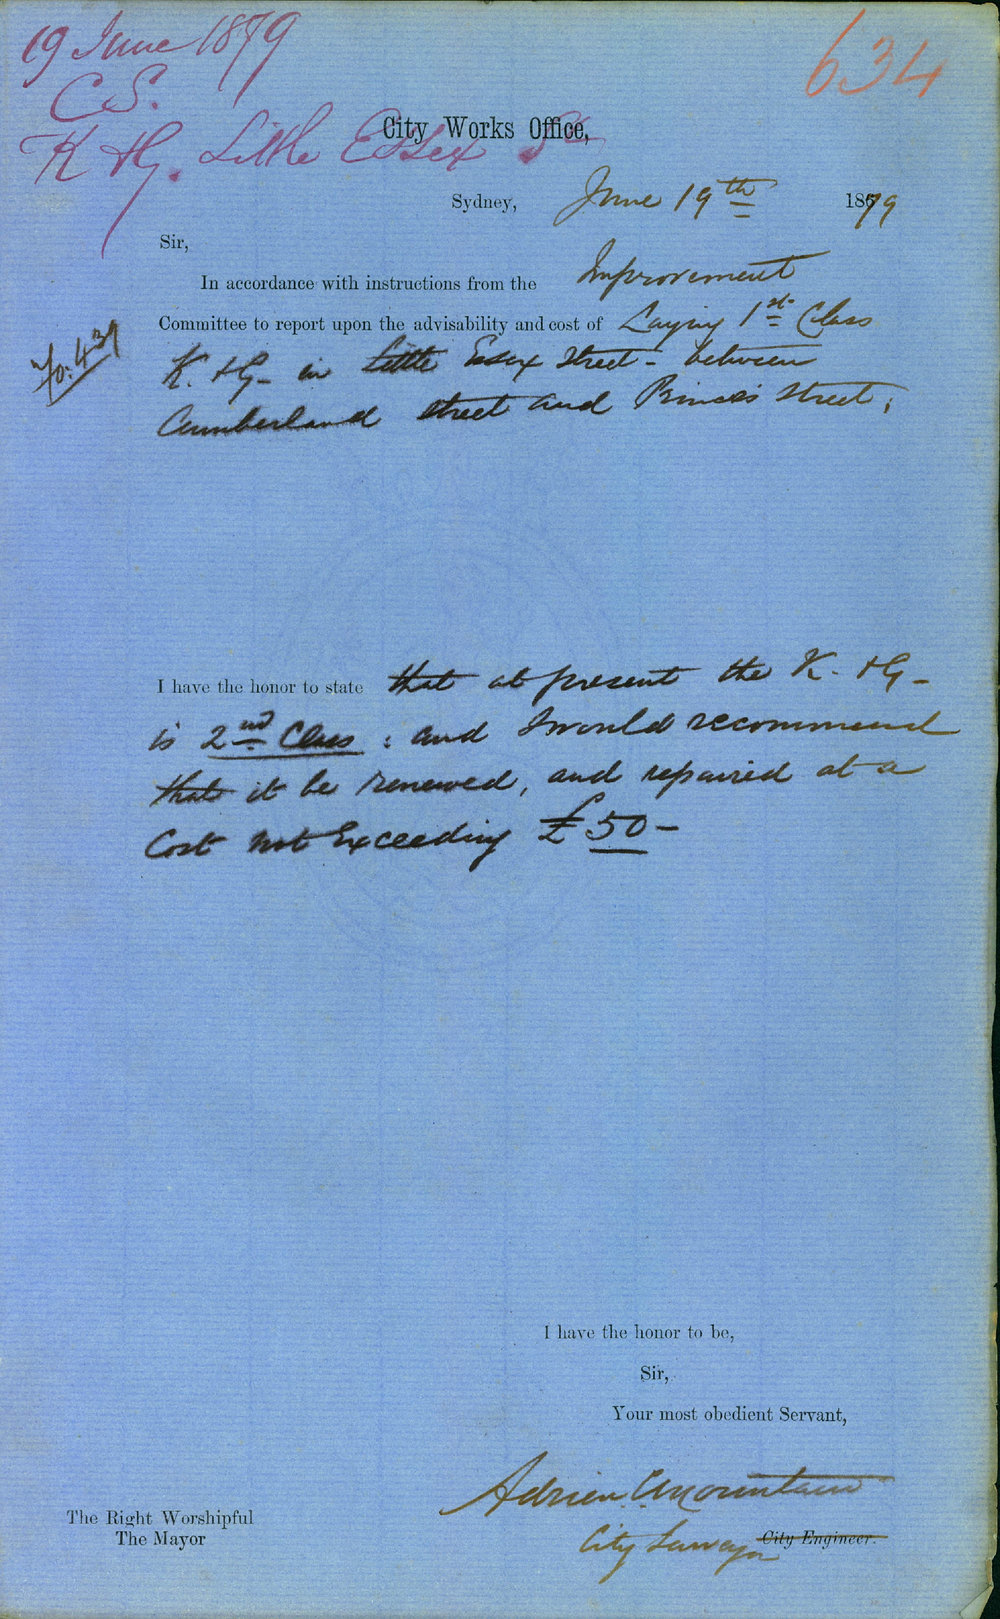 19 June 1879
634
C S.
City Works Office,
K & G. Little Essex St
Sydney, June 19th 1879
Sir,
In accordance with instructions from the Improvement
Committee to report upon the advisability and cost of Laying 1st Class
439
K. & G- in Little Essex Street - between
Cumberland Street and Princes Street;
I have the honor to state that at present the K. & G-
is 2nd Class; and I would recommend
that it be renewed, and repaired at a
Cost not Exceeding £50-
I have the honor to be,
Sir,
Your most obedient Servant,
Adrien C Mountain
The Right Worshipful
The Mayor
City Surveyor City Engineer.